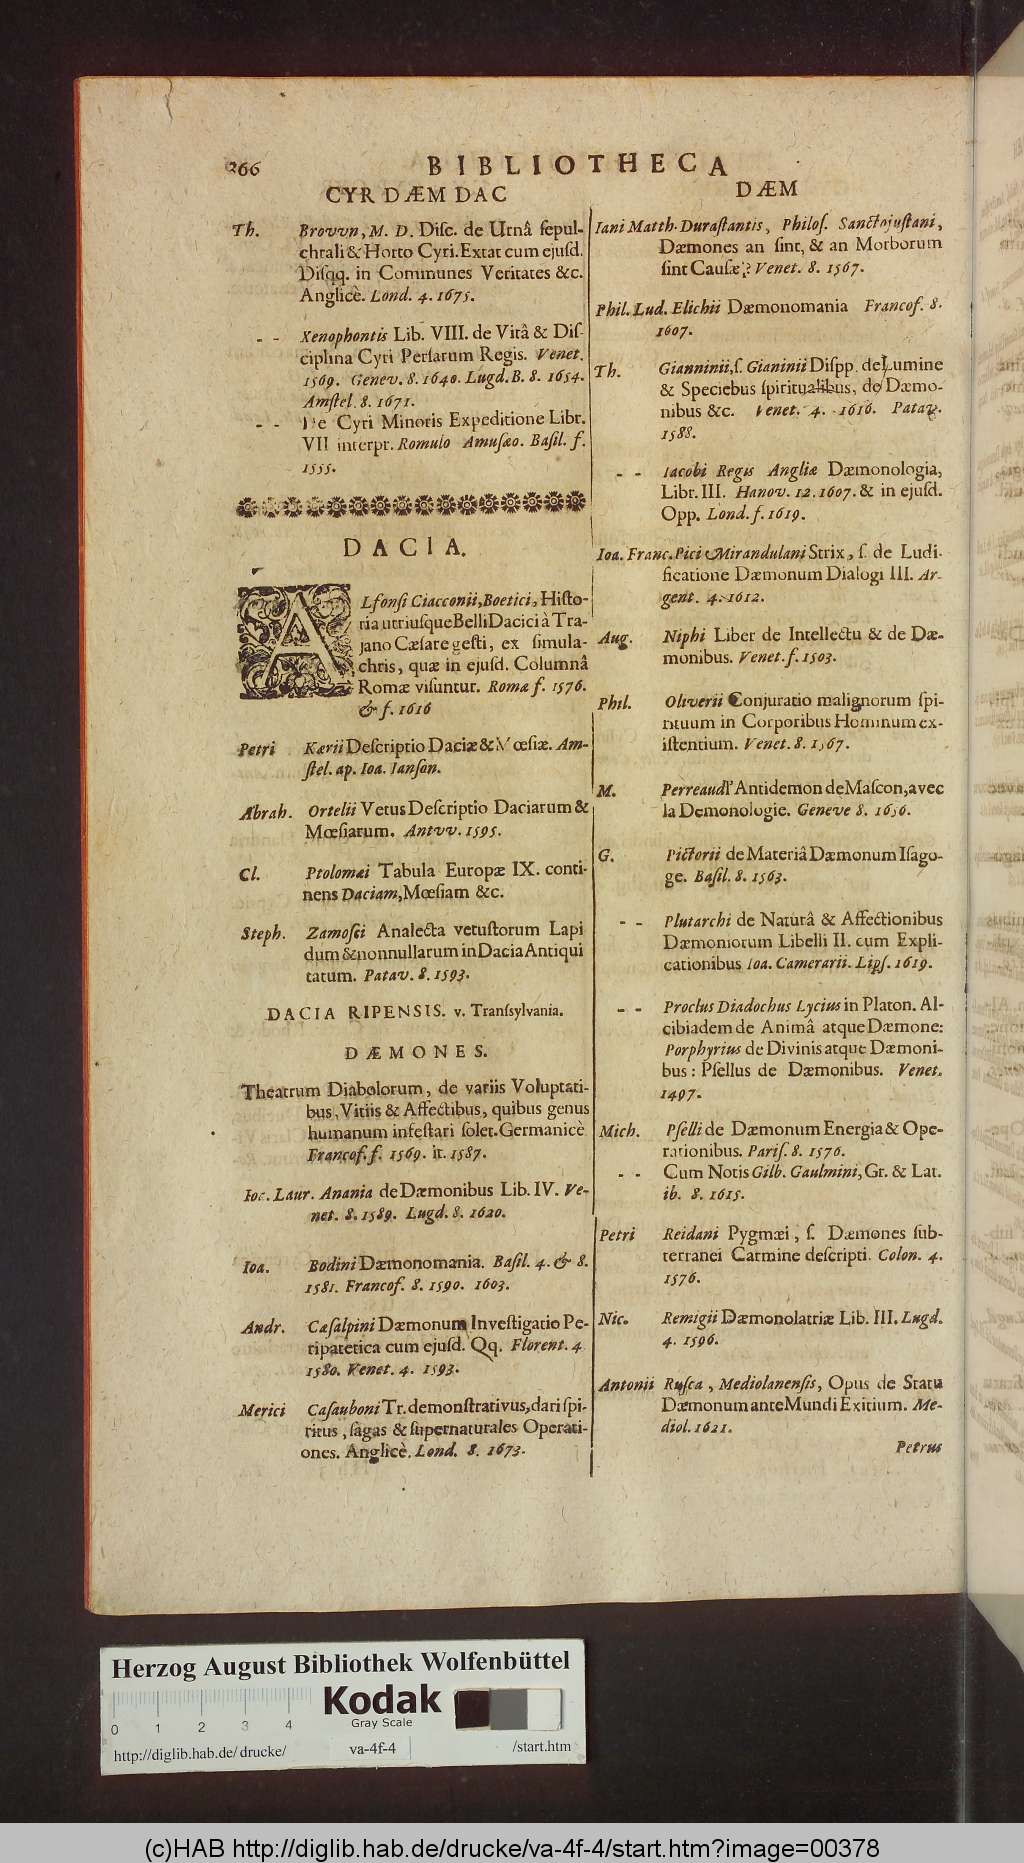 266
BIBLIOTHECA
CYR DÆM DAC
DÆM
Th. Brovvn, M. D. Disc. de Urnâ sepul-
chrali & Horto Cyri. Extat cum ejusd.
Disqq. in Communes Veritates &c.
Anglicè. Lond. 4. 1675.
- - Xenophontis Lib. VIII. de Vitâ & Dis-
ciplina Cyri Persarum Regis. Venet.
1569. Genev. 8. 1640. Lugd. B. 8. 1654.
Amstel. 8. 1671.
- - De Cyri Minoris Expeditione Libr.
VII interpr. Romulo Amusæo. Basil. f.
1555.
DACIA.
ALfonsi Ciacconii, Boetici, Histo-
ria utriusque Belli Dacici à Tra-
jano Cæsare gesti, ex simula-
chris, quæ in ejusd. Columnâ
Romæ visuntur. Romæ f. 1576.
& f. 1616
Petri Kærii Descriptio Daciæ & Mœsiæ. Am-
stel. ap. Ioa. Ianson.
Abrah. Ortelii Vetus Descriptio Daciarum &
Mœsiarum. Antvv. 1595.
Cl. Ptolomæi Tabula Europæ IX. conti-
nens Daciam, Mœsiam &c.
Steph. Zamosci Analecta vetustorum Lapi
dum & nonnullarum in Dacia Antiqui
tatum. Patav. 8. 1593.
DACIA RIPENSIS. v. Transsylvania.
DÆMONES.
Theatrum Diabolorum, de variis Voluptati-
bus, Vitiis & Affectibus, quibus genus
humanum infestari solet. Germanicè
Francof. f. 1569. it. 1587.
Ioc. Laur. Anania de Dæmonibus Lib. IV. Ve-
net. 8. 1589. Lugd. 8. 1620.
Ioa. Bodini Dæmonomania. Basil. 4. & 8.
1581. Francof. 8. 1590. 1603.
Andr. Cæsalpini Dæmonum Investigatio Pe-
ripatetica cum ejusd. Qq. Florent. 4
1580. Venet. 4. 1593.
Merici Casauboni Tr. demonstrativus, dari spi-
ritus, sagas & supernaturales Operati-
ones. Anglicè. Lond. 8. 1673.
Iani Matth. Durastantis, Philos. Sanctojustani,
Dæmones an sint, & an Morborum
sint Causæ? Venet. 8. 1567.
Phil. Lud. Elichii Dæmonomania Francof. 8.
1607.
Th. Gianninii, s. Gianinii Dispp. de Lumine
& Speciebus spiritualibus, de Dæmo-
nibus &c. Venet. 4. 1616. Patav.
1588.
- - Iacobi Regis Angliæ Dæmonologia,
Libr. III. Hanov. 12. 1607. & in ejusd.
Opp. Lond. f. 1619.
Ioa. Franc. Pici Mirandulani Strix, s. de Ludi-
ficatione Dæmonum Dialogi III. Ar-
gent. 4. 1612.
Aug. Niphi Liber de Intellectu & de Dæ-
monibus. Venet. f. 1503.
Phil. Oliverii Conjuratio malignorum spi-
rituum in Corporibus Hominum ex-
istentium. Venet. 8. 1567.
M. Perreaud l'Antidemon de Mascon, avec
la Demonologie. Geneve 8. 1656.
G. Pictorii de Materiâ Dæmonum Isago-
ge. Basil. 8. 1563.
- - Plutarchi de Naturâ & Affectionibus
Dæmoniorum Libelli II. cum Expli-
cationibus Ioa. Camerarii. Lips. 1619.
- - Proclus Diadochus Lycius in Platon. Al-
cibiadem de Animâ atque Dæmone:
Porphyrius de Divinis atque Dæmoni-
bus: Psellus de Dæmonibus. Venet.
1497.
Mich. Pselli de Dæmonum Energia & Ope-
rationibus. Paris. 8. 1576.
- - Cum Notis Gilb. Gaulmini, Gr. & Lat.
ib. 8. 1615.
Petri Reidani Pygmæi, s. Dæmones sub-
terranei Carmine descripti. Colon. 4.
1576.
Nic. Remigii Dæmonolatriæ Lib. III. Lugd.
4. 1596.
Antonii Rusca, Mediolanensis, Opus de Statu
Dæmonum ante Mundi Exitium. Me-
diol. 1621.
Petrus
Herzog August Bibliothek Wolfenbüttel
Kodak
Gray Scale
0 1 2 3 4
http://diglib.hab.de/drucke/ va-4f-4 /start.htm
(c)HAB http://diglib.hab.de/drucke/va-4f-4/start.htm?image=00378